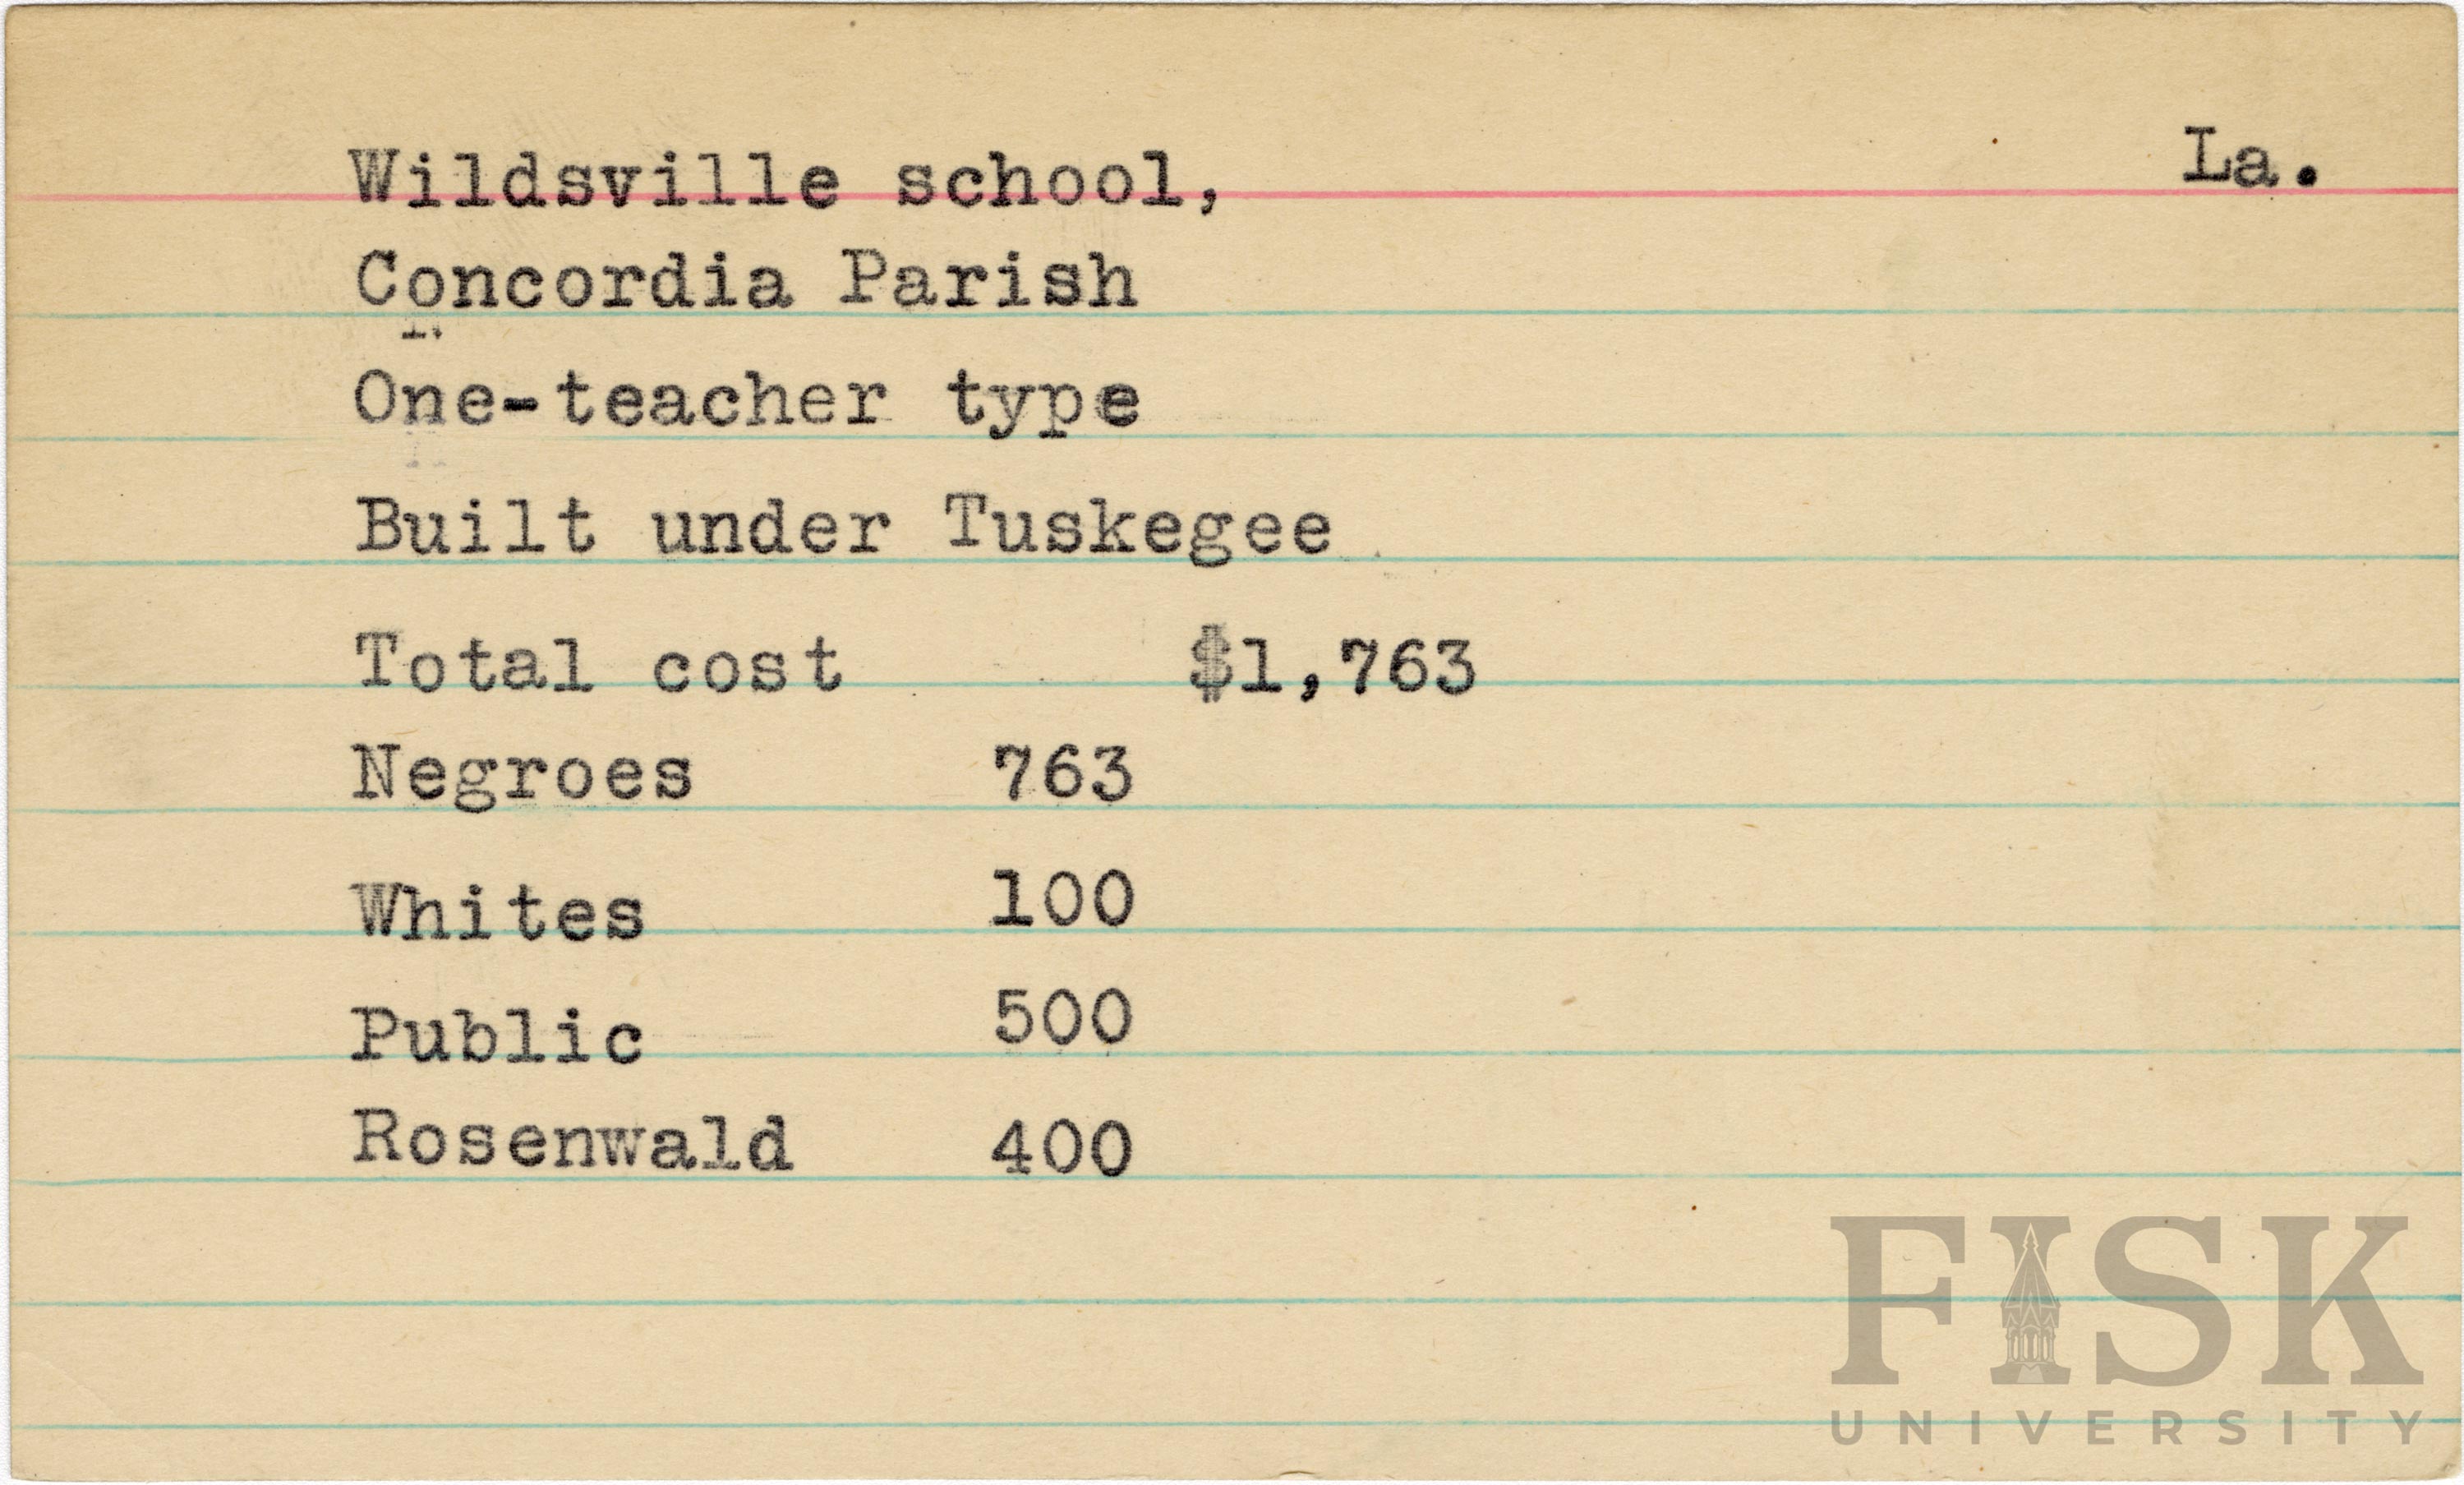 La.
Wildsville school,
Concordia Parish
One-teacher type
Built under Tuskegee
Total cost $1,763
Negroes 763
Whites 100
Public 500
Rosenwald 400
FISK
UNIVERSITY